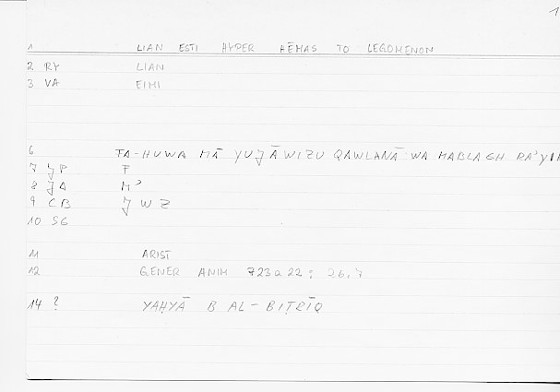 1
1 LIAN ESTI HYPER HĒMAS TO LEGOMENON
2 RY LIAN
3 VA EIMI
6 FA-HUWA MĀ YUJĀWIZU QAWLANĀ WA MABLAGH RAʾYI
7 JP F
8 JA Mʾ
9 CB J W Z
10 SG
11 ARIST
12 GENER ANIM 723a22; 26,7
14 ? YAḤYĀ B AL-BIṬRĪQ